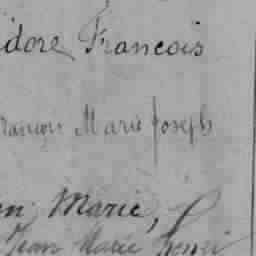 idore, Francois
rancois Marie Joseph
en Marie,
Jean Marie henri